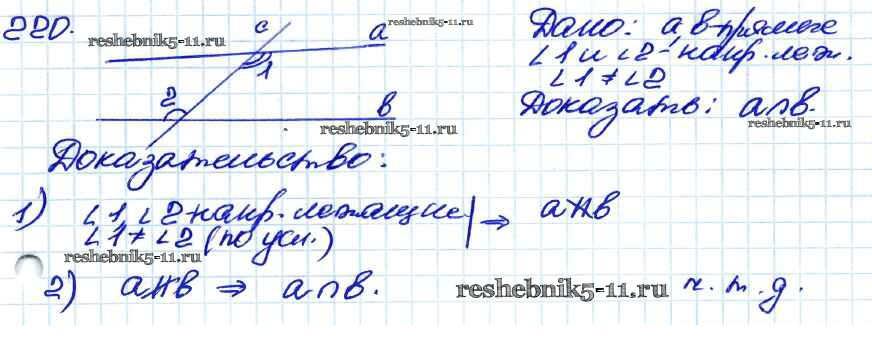 220.
c
a
1
2
b
reshebnik5-11.ru
reshebnik5-11.ru
Дано: a, b-прямые
∠1 и ∠2-накр. леж.
∠1 ≠ ∠2
Доказать: a∩b.
reshebnik5-11.ru
Доказательство:
1) ∠1, ∠2 накр. лежащие
∠1 ≠ ∠2 (по усл.) ⇒ a∦b
reshebnik5-11.ru
2) a∦b ⇒ a∩b.
reshebnik5-11.ru
ч. т. д.